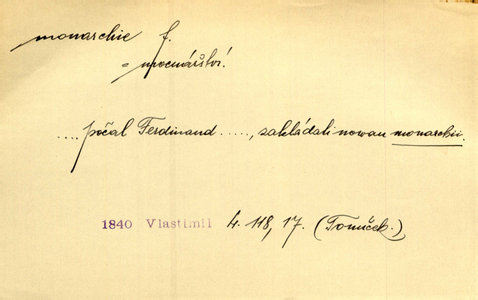 monarchie f.
= mocnářství.
.... počal Ferdinand ....., zakládati nowau monarchii.
1840 Vlastimil 4. 118, 17. (Tomíček.)